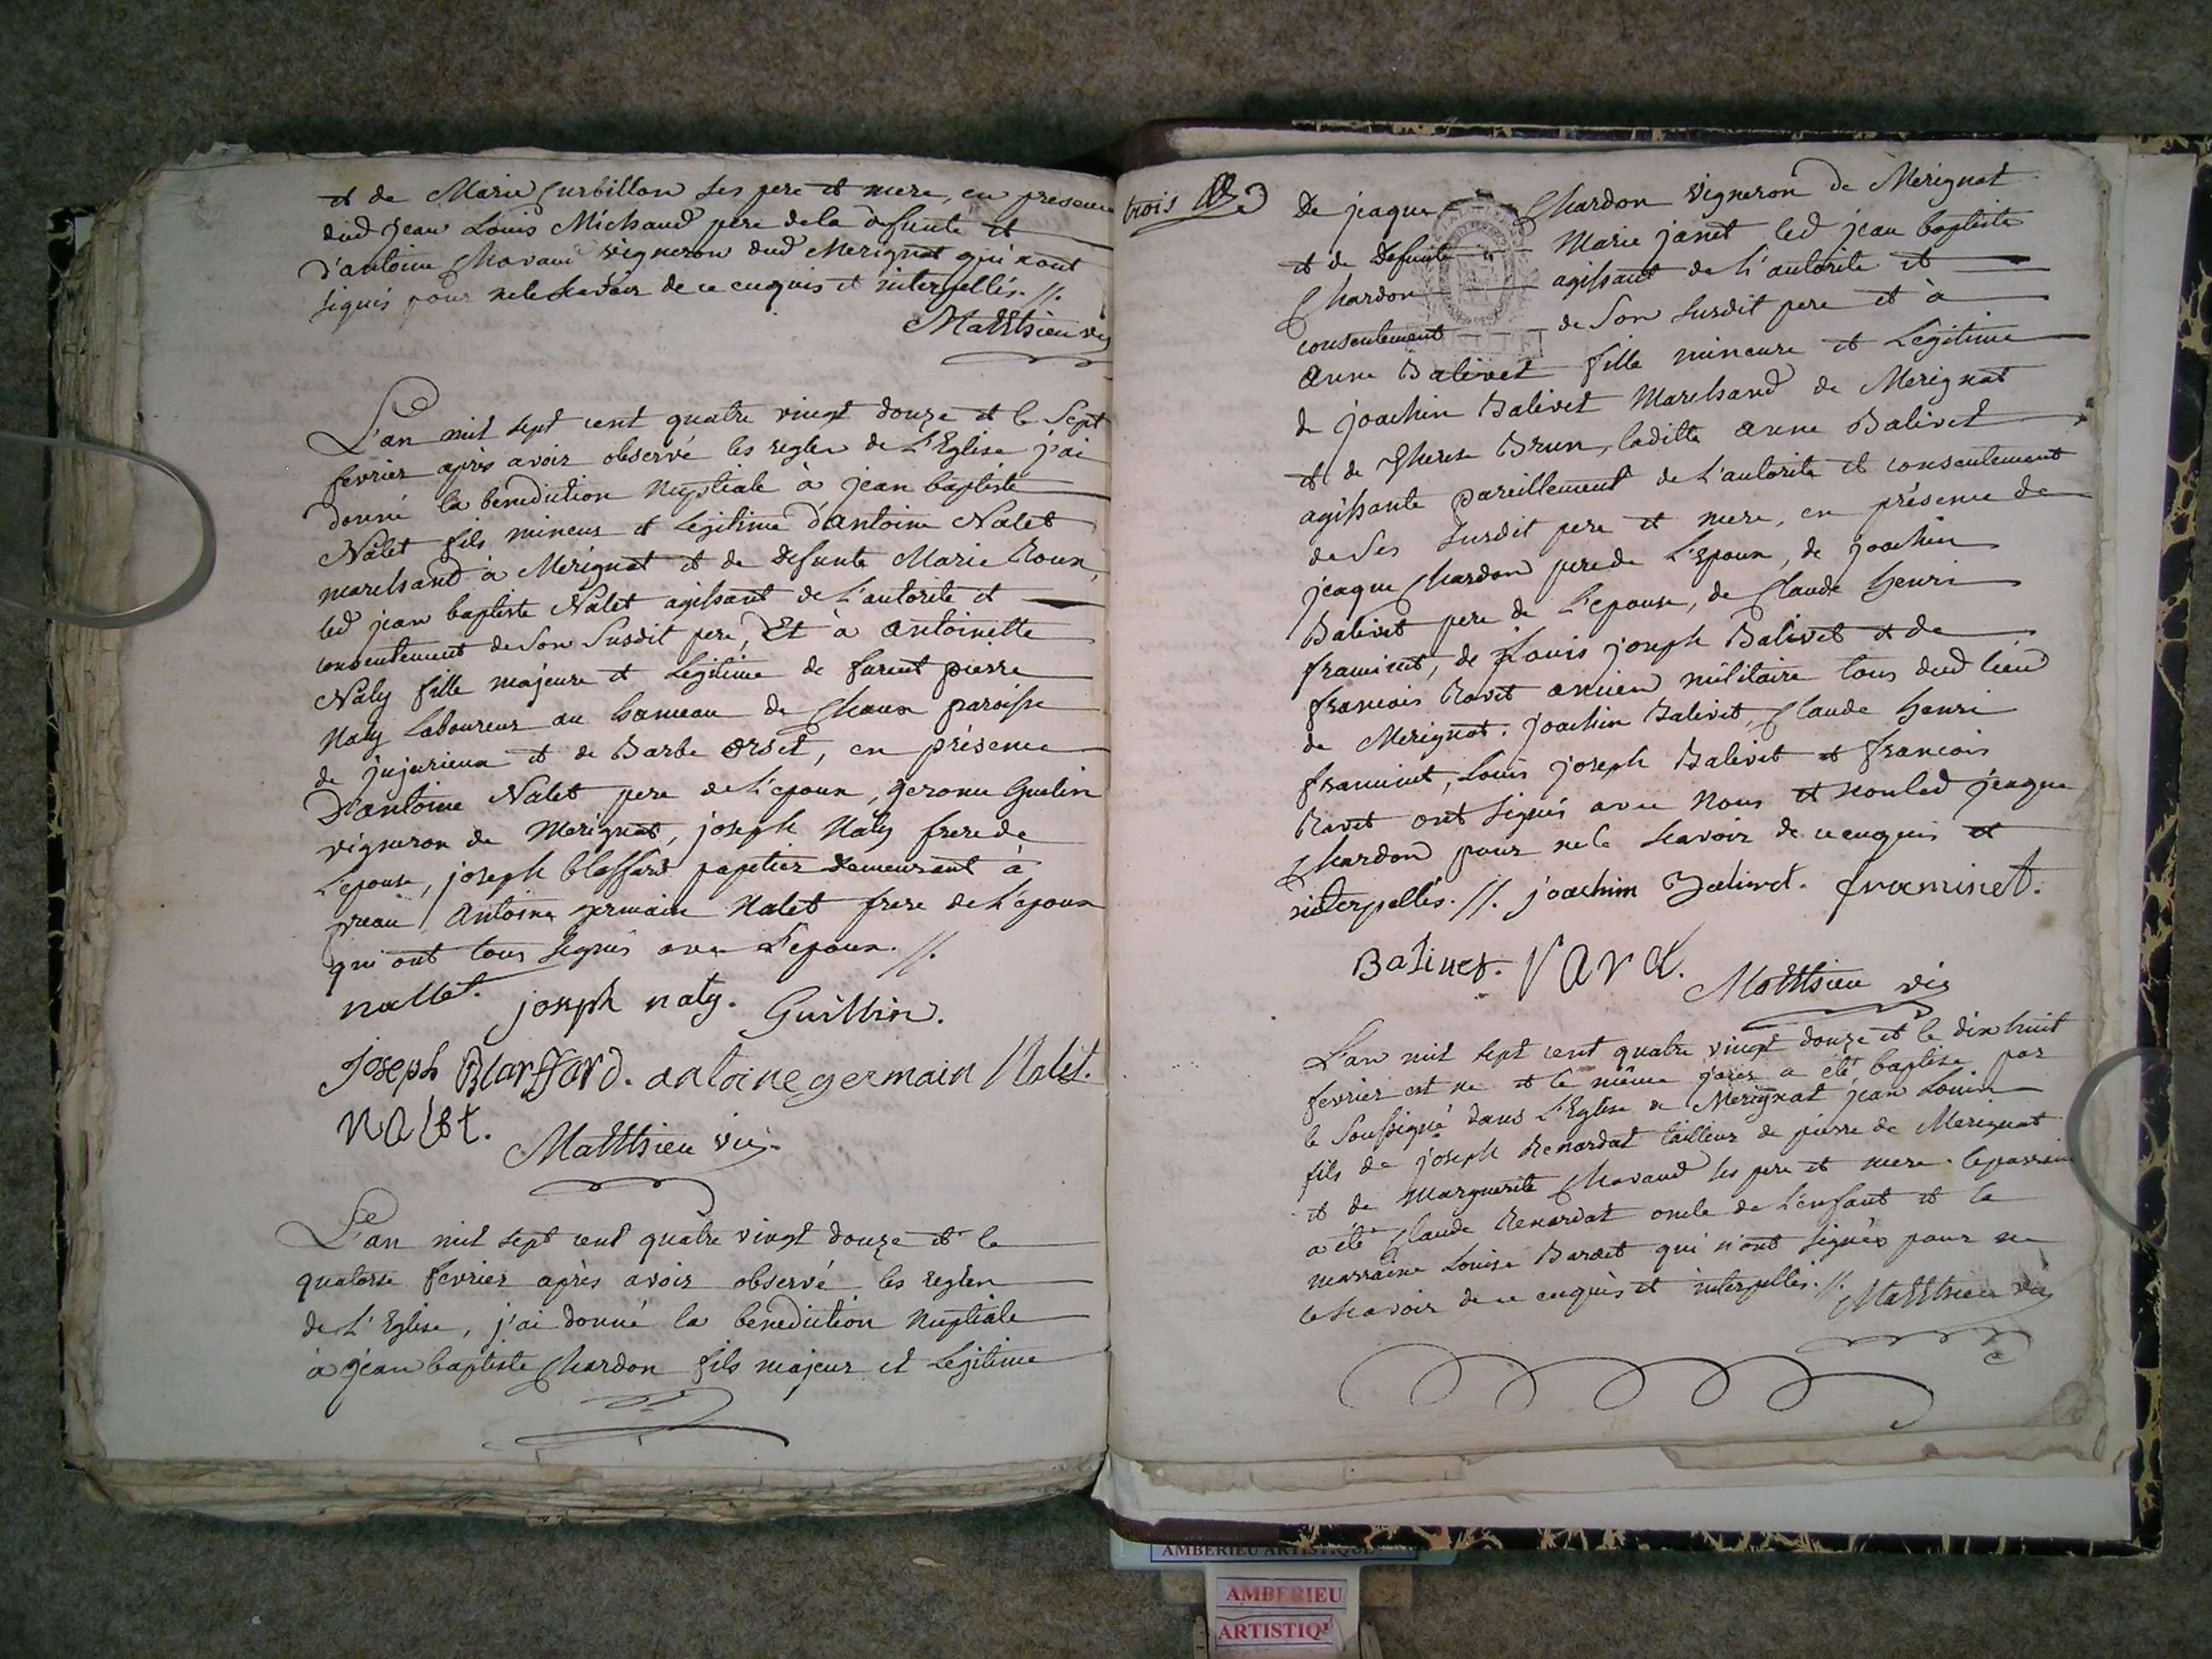 et de Marie Curbillon ses pere et mere, en presence
dud jean Louis Michaud pere dela defunte et
d'antoine Chavant vigneron dud Merignat qui n'ont
signés pour nele scavoir de ce enquis et interpellés. //.
Matthieu vic
L'an mil sept cent quatre vingt douze et le sept
fevrier après avoir observé les regles de L'Eglise j'ai
donné la benediction Nuptiale à jean baptiste
Nalet fils mineur et Legitime d'antoine Nalet
marchand à Merignat et de defunte Marie Roux,
led jean baptiste Nalet agissant de L'autorite et
consentement deson Susdit pere, Et à antoinette
Naly fille majeure et Legitime de furent pierre
Naly Laboureur au hameau de Chaux paroisse
de jujurieux et de Barbe Orset, en présence
D'antoine Nalet pere de L'epoux, gerome Guelin
vigneron de Merignat, joseph Naly frere de
L'epouse, joseph blassard papetier demeurant à
preau, Antoine germain Nalet frere de L'epoux
qui ont tous signés avec L'epoux. //.
nallet. joseph naly. Guillin.
Joseph Blarffard. antoine germain Nalet.
NAlet. Matthieu vic.
L'an mil sept cent quatre vingt douze et le
quatorze fevrier après avoir observé les regles
de L'Eglise, j'ai donné la benediction Nuptiale
à jean baptiste Chardon fils majeur et Legitime
trois 3
De jaque Chardon vigneron de Merignat
et de Defunte Marie janet led jean baptiste
Chardon agissant de L'autorite et
consentement de Son susdit pere et à
anne Balivet fille mineure et Legitime
de joachin Balivet Marchand de Merignat
et de Therese Brun, laditte anne Balivet
agissante pareillement de L'autorite et consentement
de Ses susdit pere et mere, en présence de
jeaque Chardon pere de L'Epoux, de joachin
Balivet pere de L'epouse, de Claude henri
framinet, de Louis joseph Balivet et de
francois Ravet ancien militaire tous dud lieu
de Merignat. joachin Balivet, Claude henri
framinet, Louis joseph Balivet et francois
Ravet ont signés avec Nous et non led jeaque
Chardon pour nele scavoir de ce enquis et
interpellés. //. joachim Balivet. framinet.
Balivet. Matthieu vic
L'an mil sept cent quatre vingt douze et le dix huit
fevrier est ne et le même jour a été baptise par
le Soussigné dans L'Eglise de Merignat jean Louis
fils de joseph Renardat tailleur de pierre de Merignat
et de Marguerite Chavand ses pere et mere. le parrain
a été Claude Renardat oncle de L'enfant et la
marraine Louise Bardet qui n'ont signés pour ne
le scavoir de ce enquis et interpellés. //. Matthieu vic
AMBERIEU ARTISTIQUE
AMBERIEU
ARTISTIQ